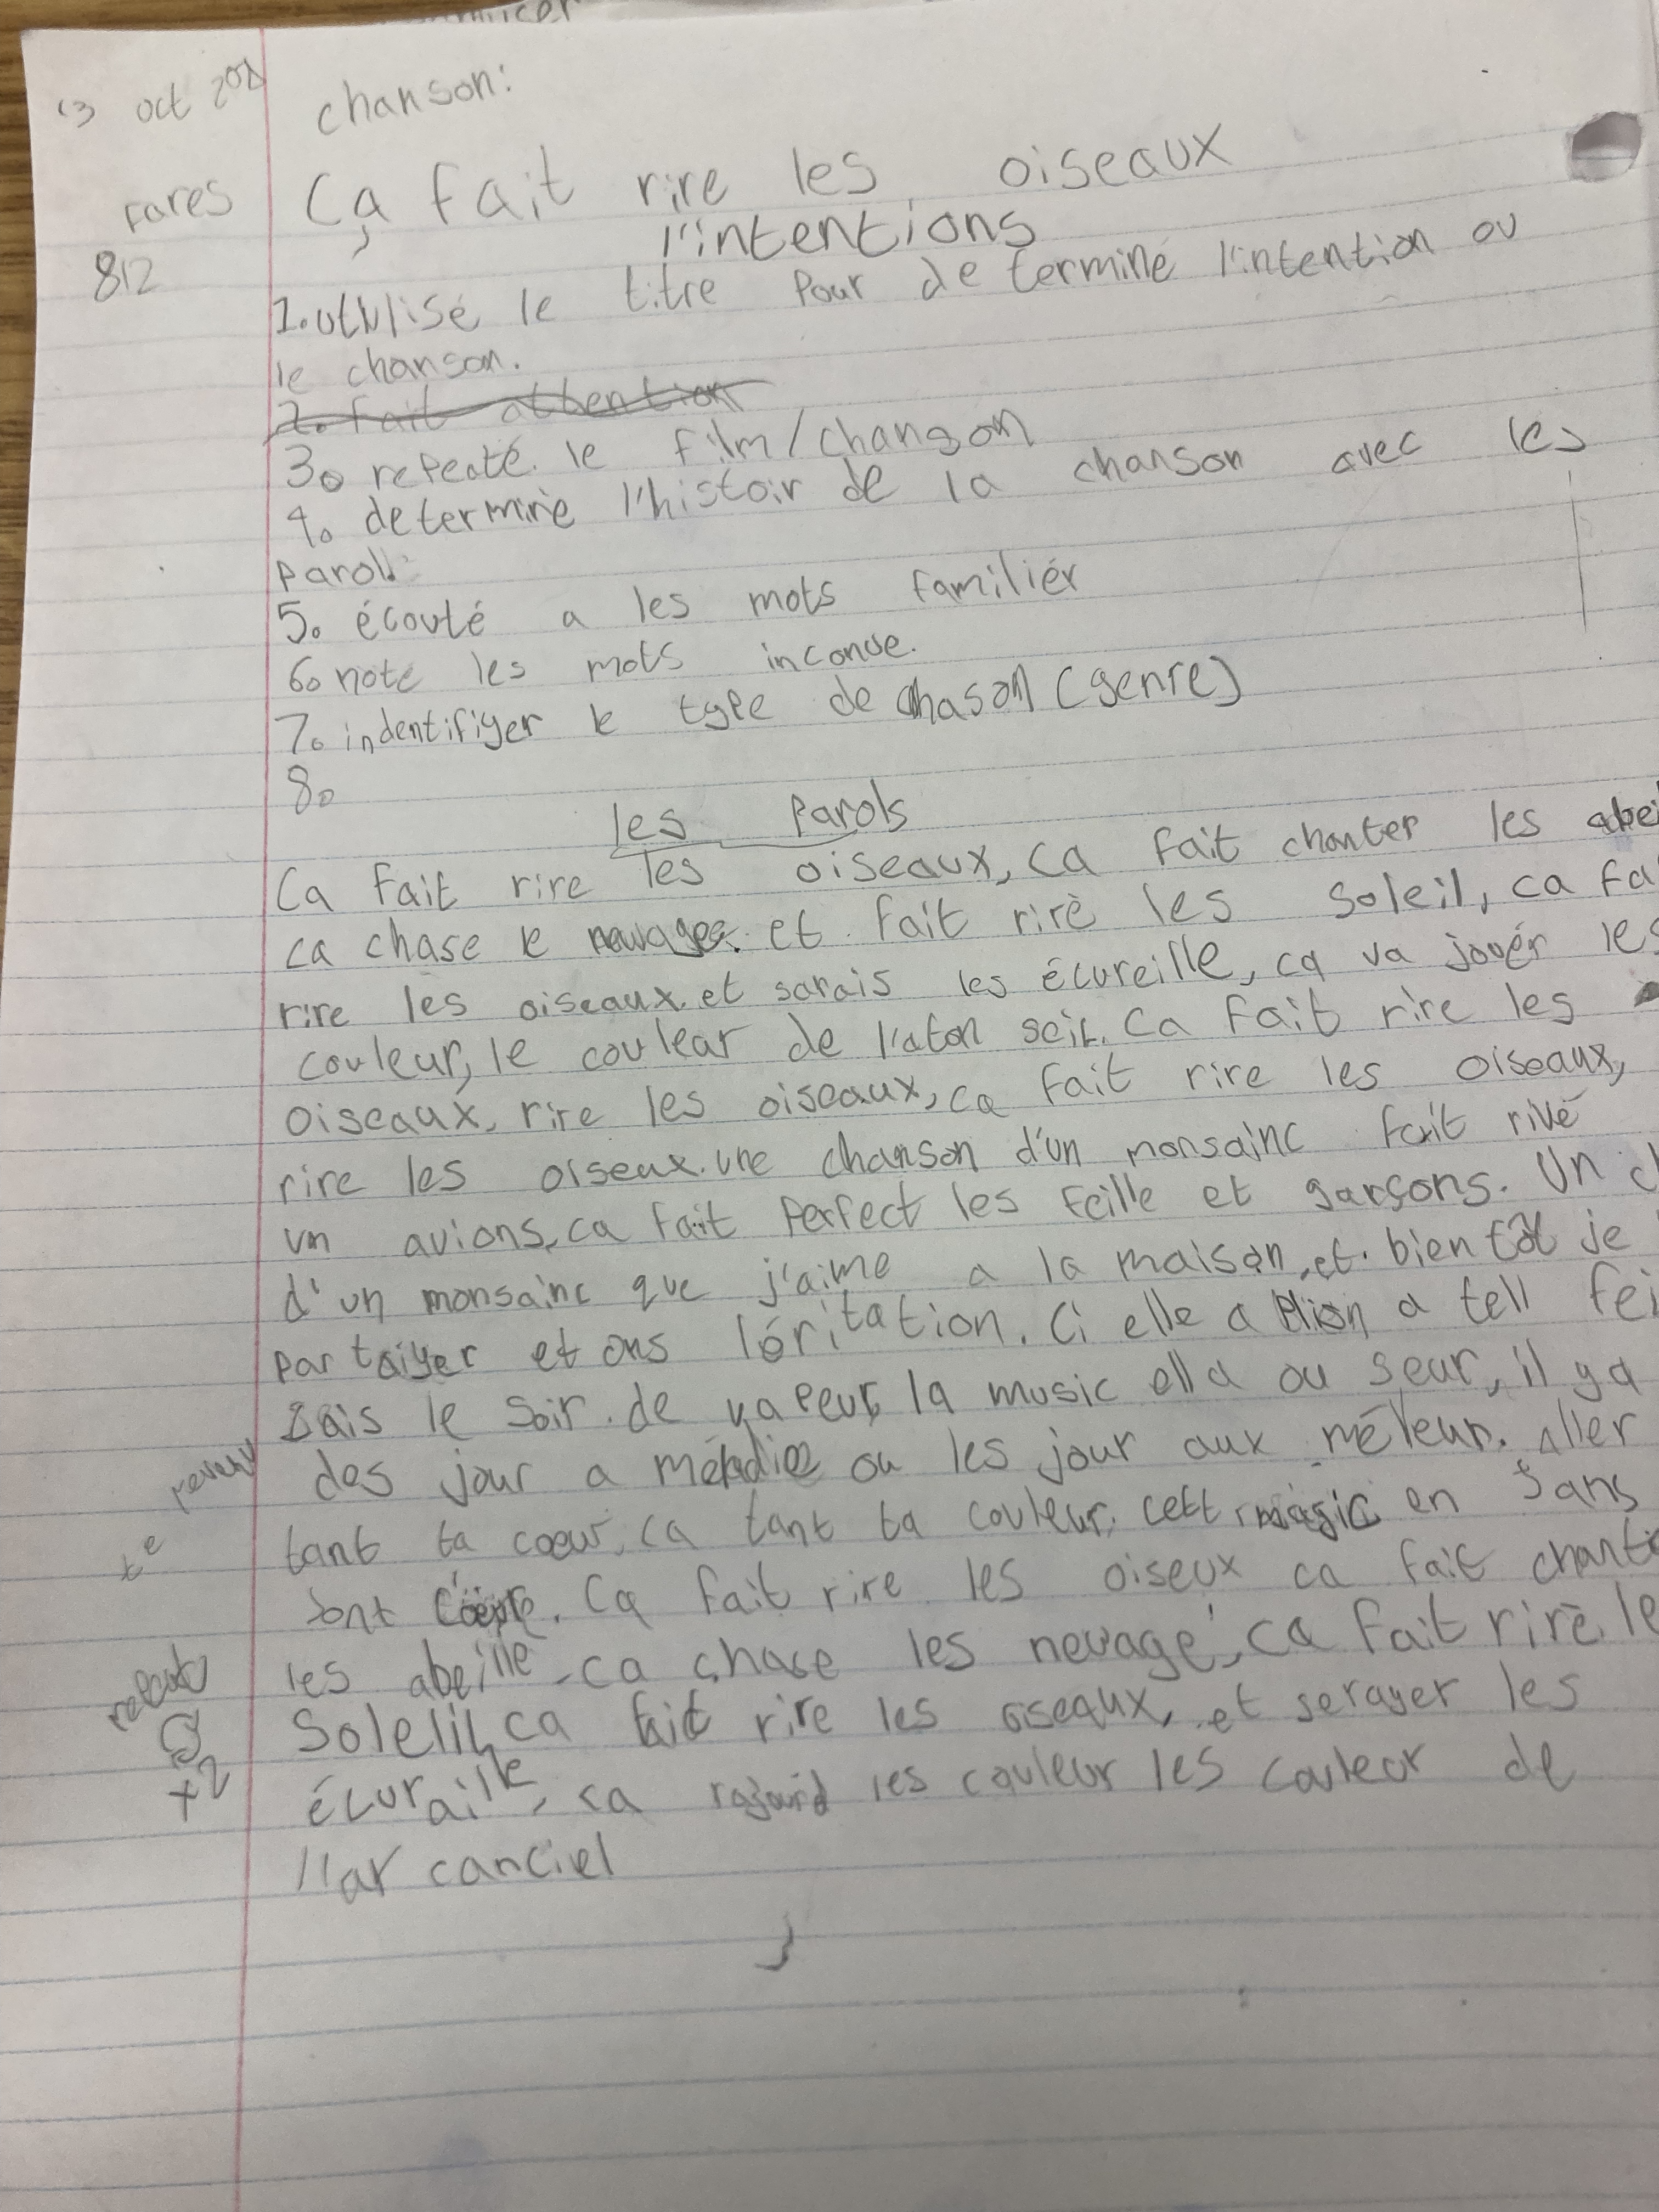 oct
chanson:
fares
Ça fait rire les oiseaux
812
l'intentions
1. utulisé le titre pour de terminé l'intention ou
le chanson.
2. fait attention
3. repeaté. le film/changson
4. determiné l'histoir de la chanson avec les
parol
5. écouté a les mots familiér
6. note les mots inconue.
7. indentifiyer le type de chason (genre)
8.
les parols
Ca fait rire les oiseaux, ca fait chanter les abei
ca chase le et fait rire les soleil, ca fa
rire les oiseaux. et sarais les écureille, ca va jouér les
couleur, le coulear de l'aton seil. Ca fait rire les
oiseaux, rire les oiseaux, ca fait rire les oiseaux,
rire les oiseux. une chanson d'un monsainc fait rivé
un avions, ca fait perfect les feille et garçons. Un
d'un monsainc que j'aime a la maison, et. bien tôt je
par taiyer et ons lóritation. Ci elle a a tell fei
sais le soir. de vapeur, la music ella ou seur, il ya
des jour a ou les jour aux méleur. Aller
tant ta coeur, ca tant ta couleur, cett magic en sans
sont. Ca fait rire les oiseux ca fait chante
les abeille, ca chase les nevagé, ca fait rire le
Soleil, ca fait rire les oiseaux, et serayer les
x2
écuraille, ca les couleur les couleur de
l'ar canciel